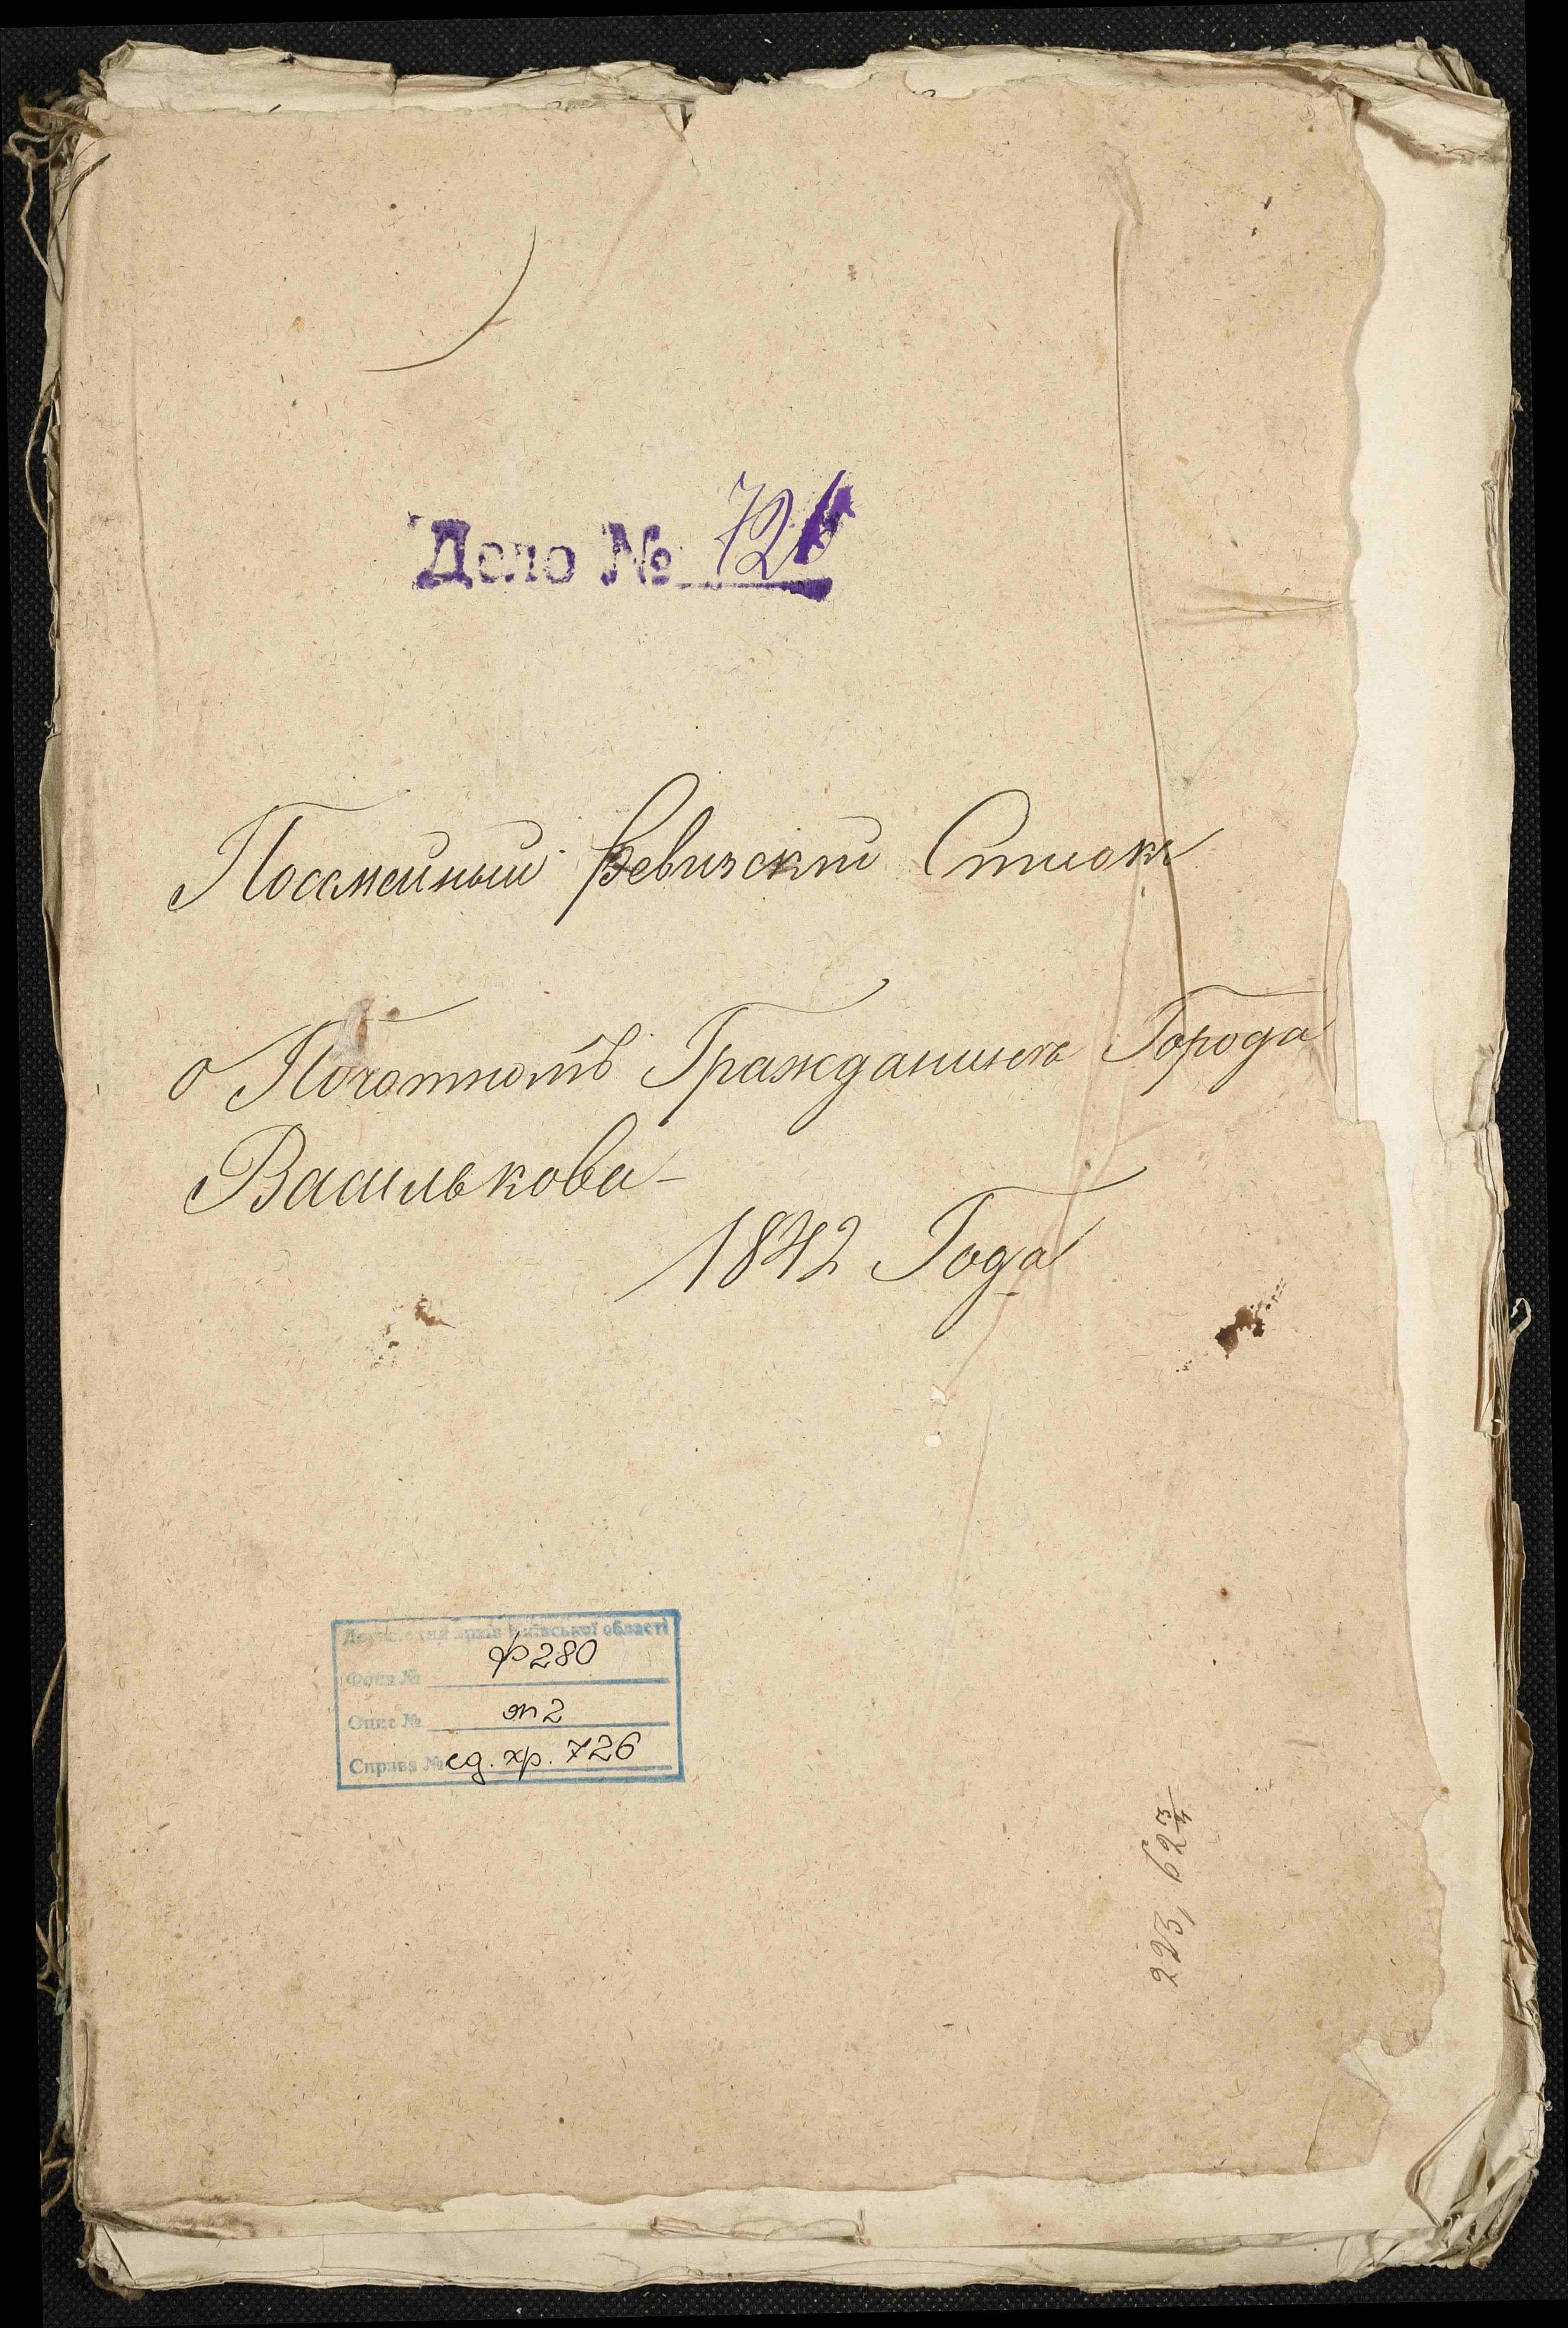 Дело № 726
Посемейный Ревизский Список
о Почотномъ Гражданинѣ Города
Василькова
1842 Года
Державний архів Київської області
Фонд № ф 280
Опис № оп 2
Справа № ед. хр. 726